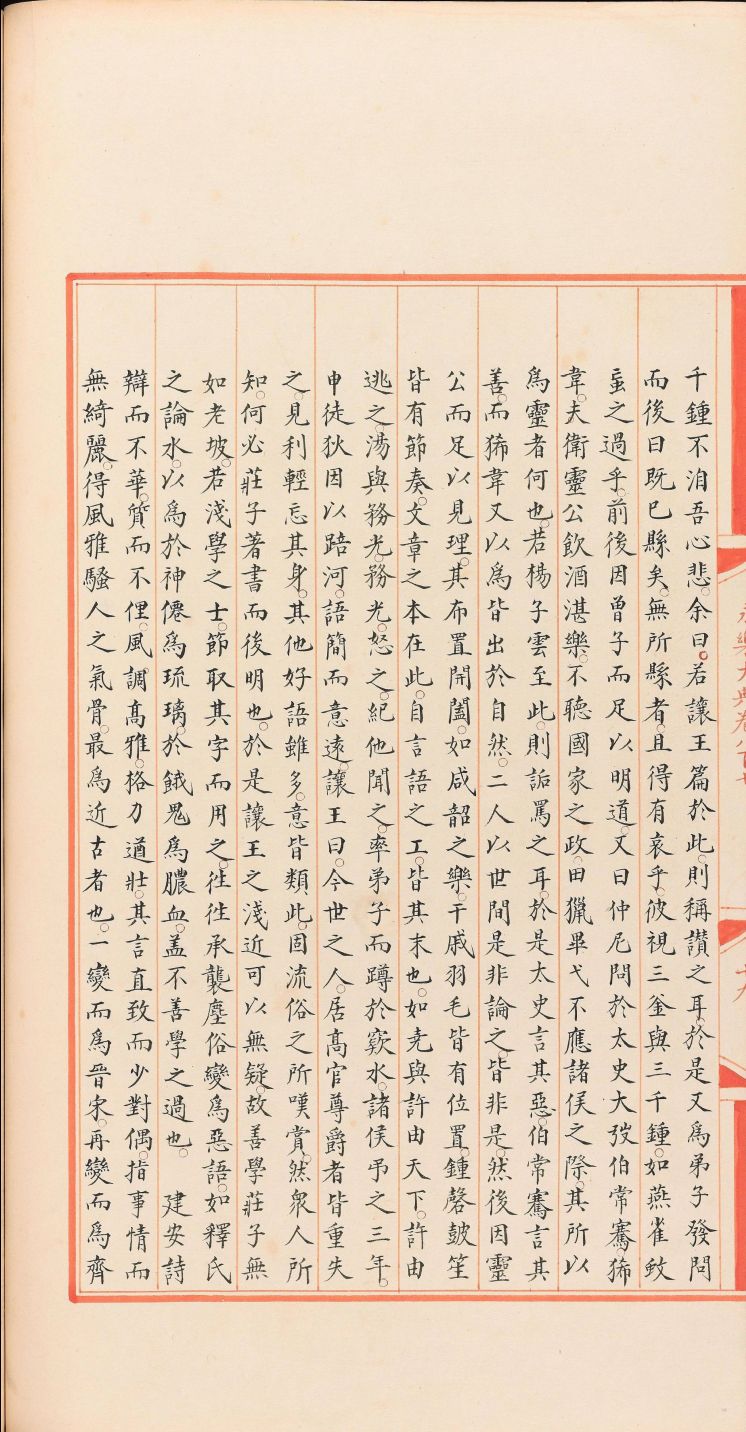 永樂大典卷八百七
十九
千鍾不洎吾心悲余曰若讓王篇於此則稱讃之耳於是又爲弟子發問
而後曰既已縣矣無所縣者且得有哀乎彼視三釜與三千鍾如燕雀蚊
䖟之過乎前後因曾子而足以明道又曰仲尼問於太史大弢伯常騫狶
韋夫衛靈公飲酒湛樂不聽國家之政田獵畢弋不應諸侯之際其所以
爲靈者何也若楊子雲至此則詬罵之耳於是太史言其惡伯常騫言其
善而狶韋又以爲皆出於自然二人以世間是非論之皆非是然後因靈
公而足以見理其布置開闔如咸韶之樂干戚羽毛皆有位置鍾磬皷笙
皆有節奏文章之本在此自言語之工皆其末也如尭與許由天下許由
逃之湯與務光務光怒之紀他聞之率弟子而蹲於窾水諸侯弔之三年
申徒狄因以踣河語簡而意遠讓王曰今世之人居髙官尊爵者皆重失
之見利輕忘其身其他好語雖多意皆類此固流俗之所嘆賞然衆人所
知何必莊子著書而後明也於是讓王之淺近可以無疑故善學莊子無
如老坡若淺學之士節取其字而用之徃徃承襲塵俗變爲惡語如釋氏
之論水以爲於神僊爲琉璃於餓鬼爲膿血盖不善學之過也 建安詩
辯而不華質而不俚風調髙雅格力遒壯其言直致而少對偶指事情而
無綺麗得風雅騷人之氣骨最爲近古者也一變而爲晉宋再變而爲齊